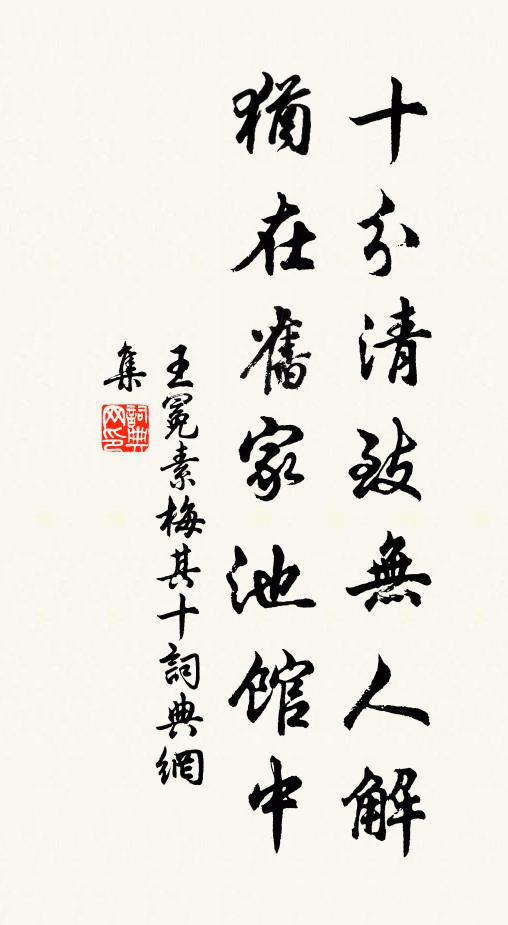 十分清致無人解
猶在舊家池館中
王冕素梅其十詞典網
集
詞典网印